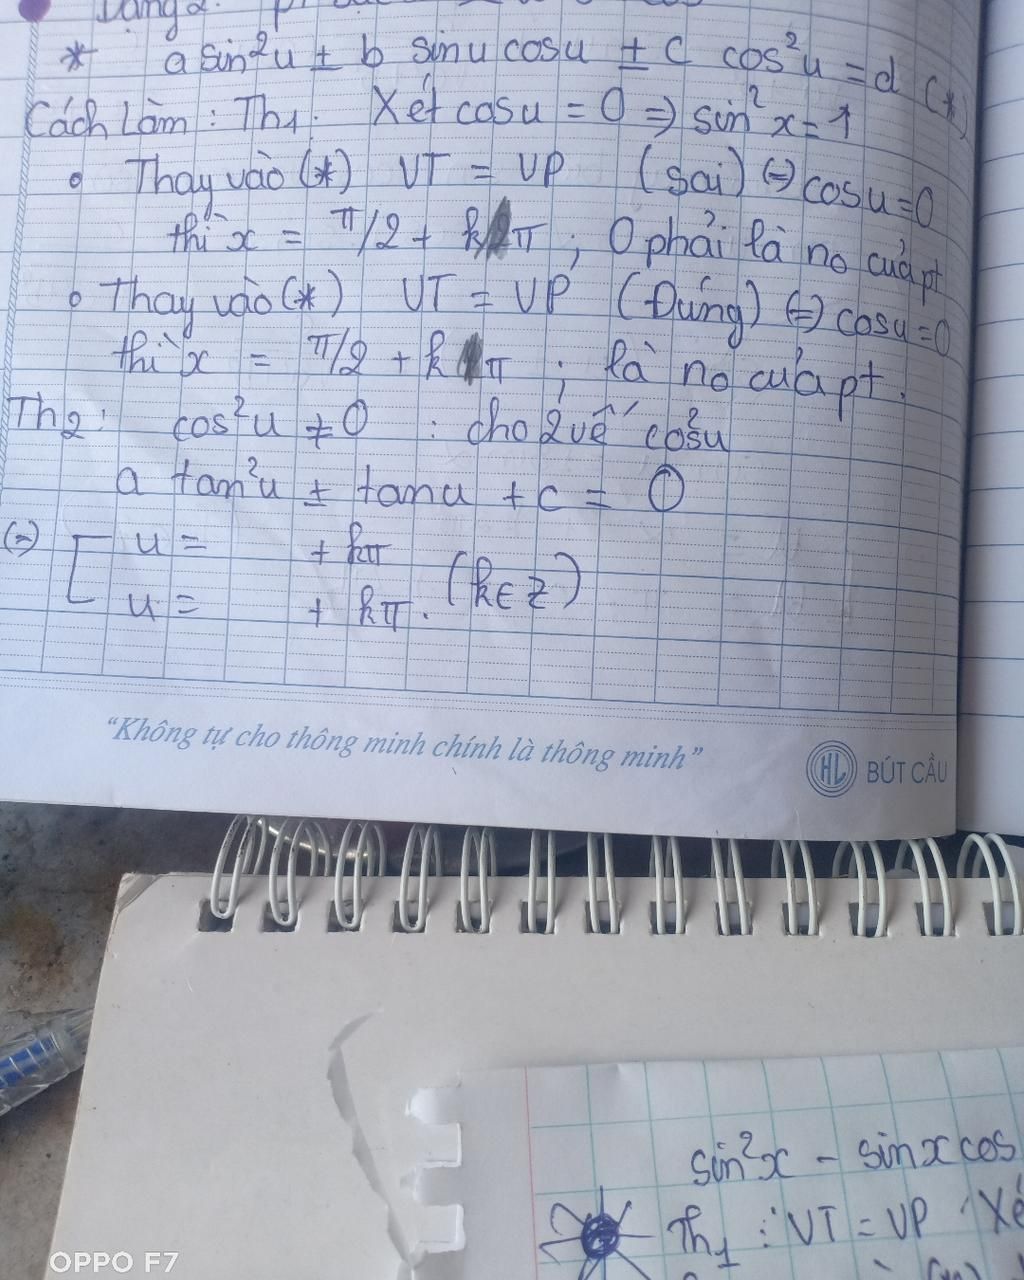 Dạng 2:
* a sin²u ± b sinu cosu ± c cos²u = d (*)
Cách Làm: Th1: Xét cosu = 0 => sin²x = 1
• Thay vào (*) VT = VP (sai) (=) cosu = 0
thì x = π/2 + kπ ; 0 phải là no của pt
• Thay vào (*) VT = VP (Đúng) (=) cosu = 0
thì x = π/2 + kπ ; là no của pt.
Th2: cos²u ≠ 0 : cho 2 vế cos²u
a tan²u ± tanu + c = 0
(=) [ u = + kπ
u = + kπ. (k∈Z)
"Không tự cho thông minh chính là thông minh"
HL BÚT CẦU
sin²x - sinx cos
Th1 : VT = VP Xé
OPPO F7